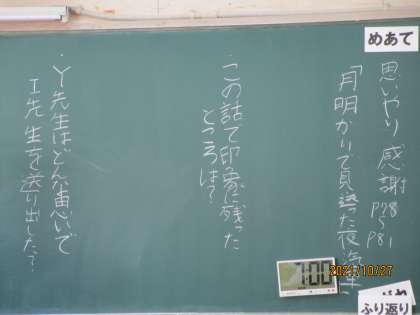 めあて
思いやり 感謝 P78～P81
「月明かりで見送った夜汽車」
・この話で印象に残った
ところは？
・Y先生はどんな思いで
I先生を送り出した？
7:00
2021/10/27
ふり返り